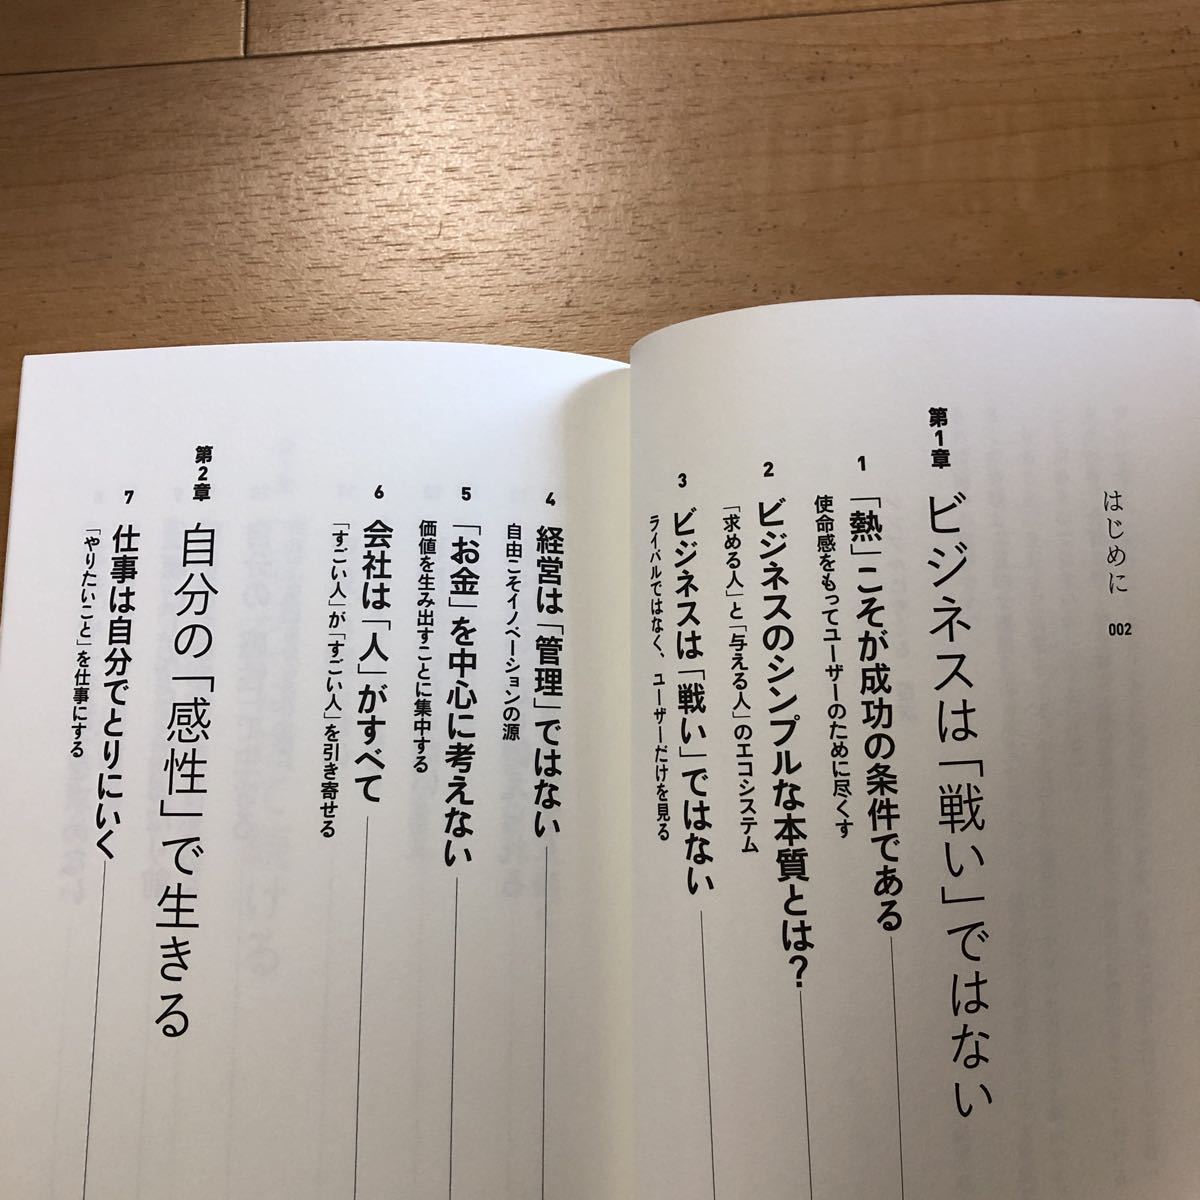 はじめに 002
第1章 ビジネスは「戦い」ではない
1 「熱」こそが成功の条件である
使命感をもってユーザーのために尽くす
2 ビジネスのシンプルな本質とは?
「求める人」と「与える人」のエコシステム
3 ビジネスは「戦い」ではない
ライバルではなく、ユーザーだけを見る
4 経営は「管理」ではない
自由こそイノベーションの源
5 「お金」を中心に考えない
価値を生み出すことに集中する
6 会社は「人」がすべて
「すごい人」が「すごい人」を引き寄せる
第2章 自分の「感性」で生きる
7 仕事は自分でとりにいく
「やりたいこと」を仕事にする